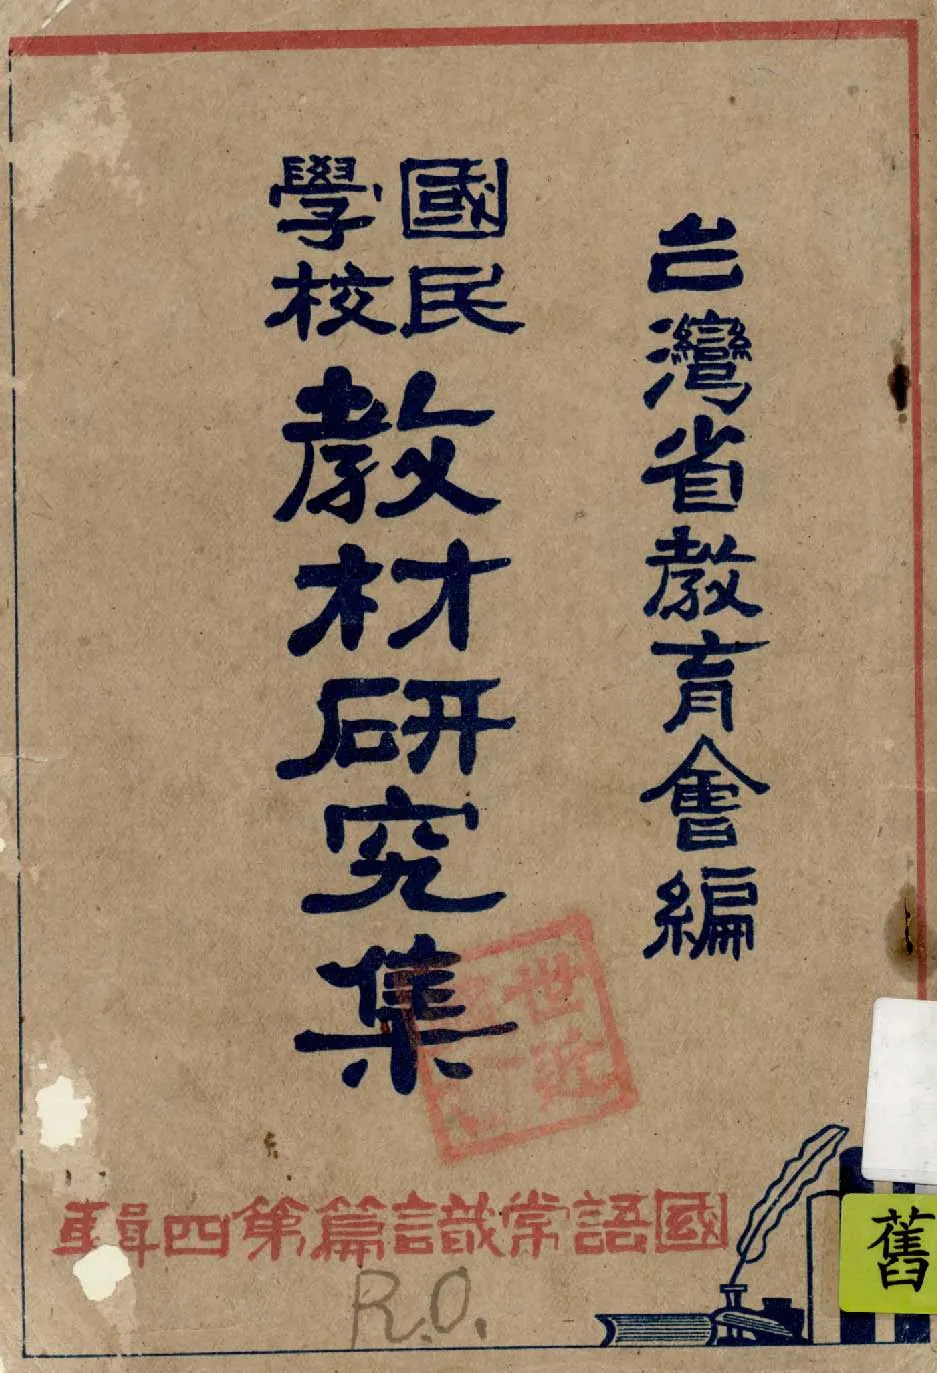 台灣省教育會編
國民
學校
教材研究集
國語常識篇第四輯
世近
R.O.
舊